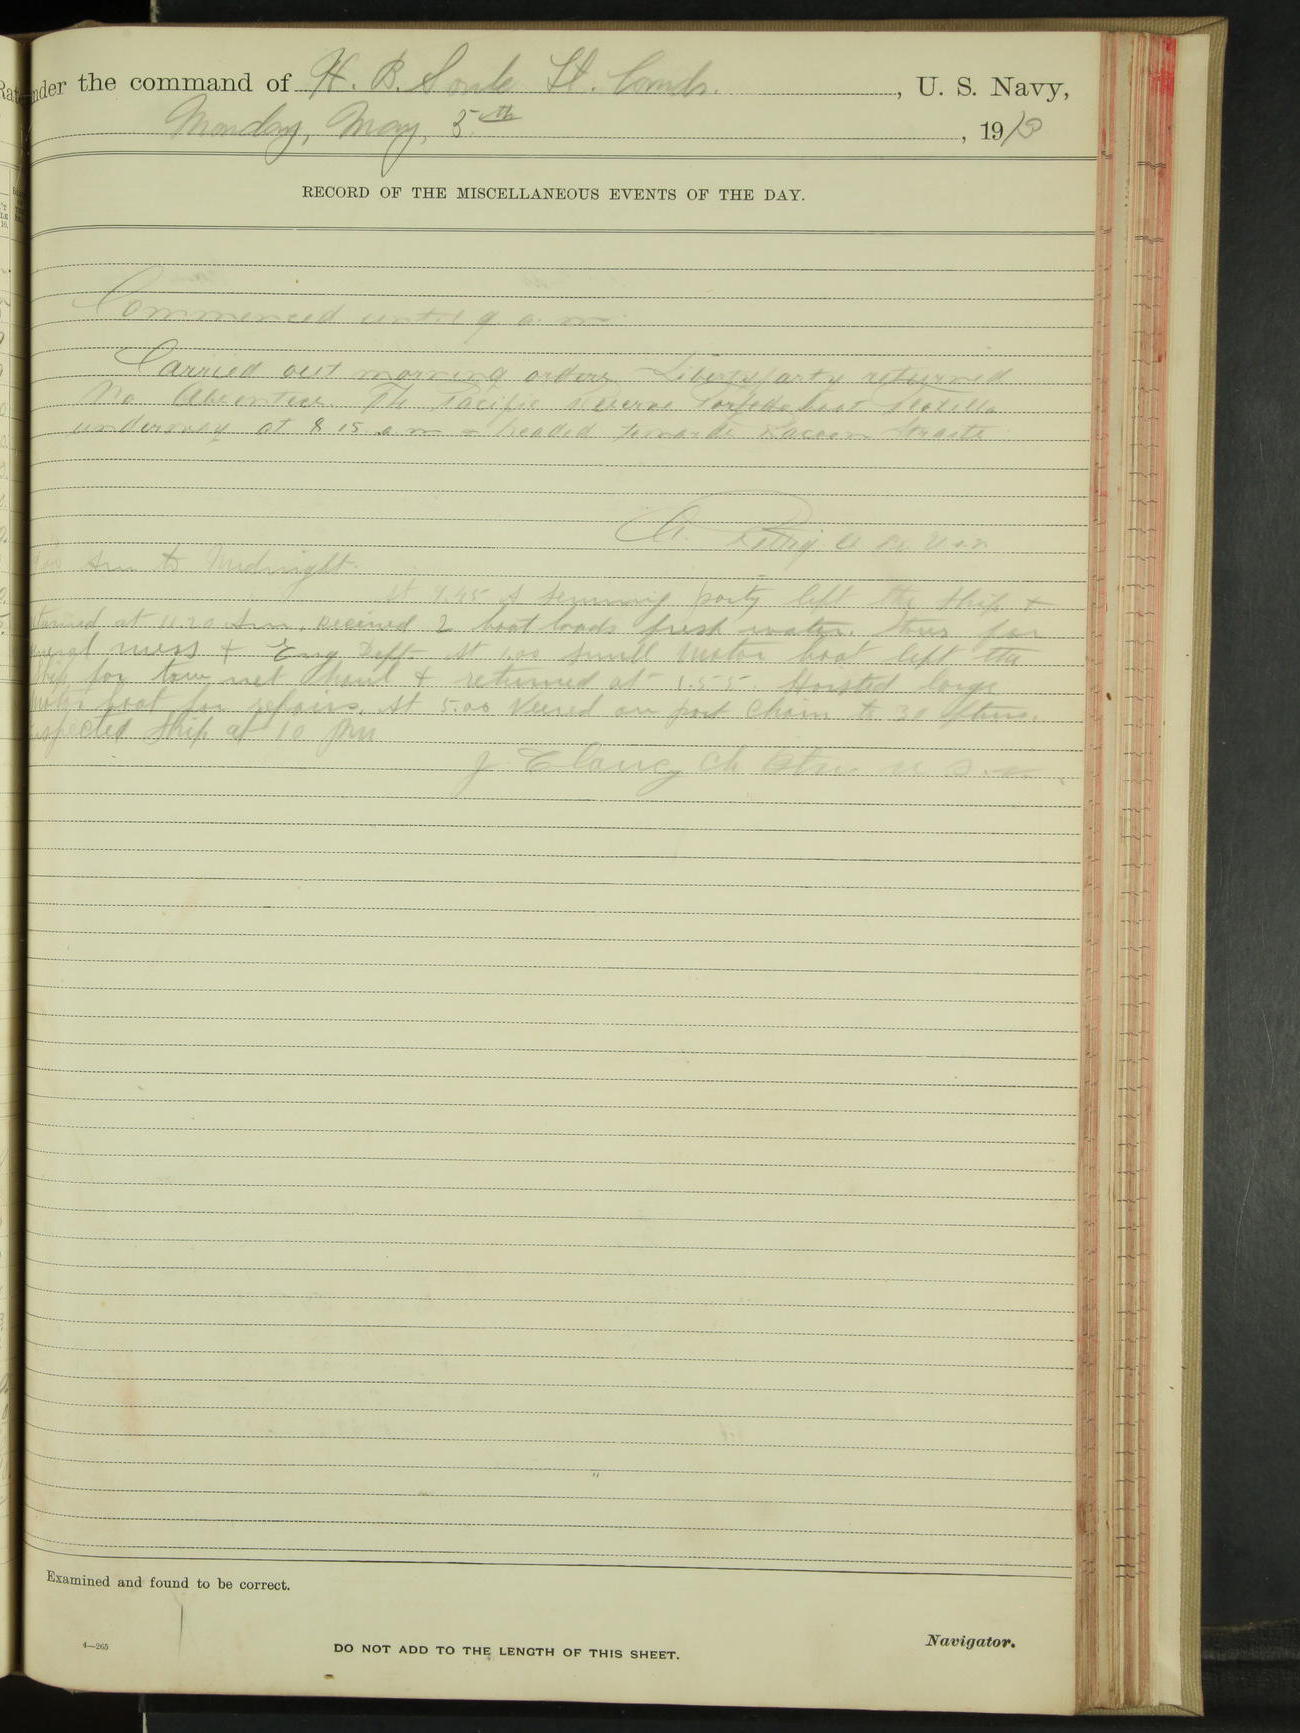 under the command of H. B. Soule Lt. Comdr. , U. S. Navy,
Monday, May, 5th , 1913
RECORD OF THE MISCELLANEOUS EVENTS OF THE DAY.
Commenced until 9 a. m.
Carried out morning orders. Liberty party returned
No Absentees. The Pacific Reserve Torpedo boat Flotilla
underway at 8 15 a.m - headed towards Racoon Straits
A. U.S.N.
Am to Midnight.
At 9.45 A seining party left the ship +
at 11.20 Am. received 2 boat loads fresh water. Stores for
mess + Eng Dept. At 1.00 small motor boat left the
ship for tow net + returned at 1.55. Hoisted large
motor boat for repairs. At 5.00 Veered on port Chain to 30 fthms.
Inspected Ship at 10 Pm
J Clancy Ch Btsn U. S. N.
Examined and found to be correct.
4—265
DO NOT ADD TO THE LENGTH OF THIS SHEET.
Navigator.